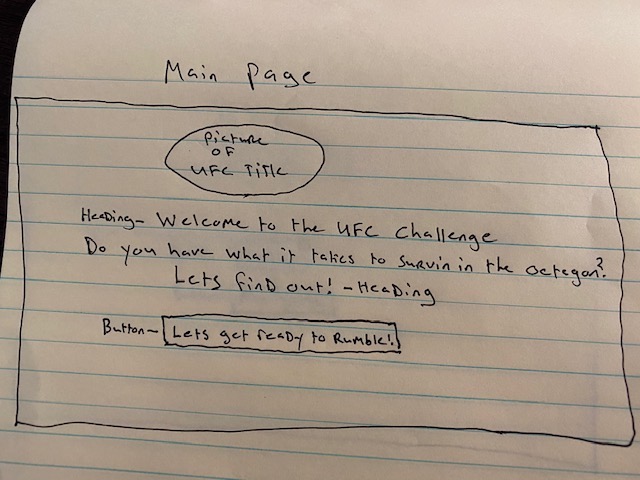 Main Page
Picture
OF
UFC Title
Heading- Welcome to the UFC Challenge
Do you have what it takes to Survin in the octegon?
Lets find out! - Heading
Button- Lets get ready to Rumble!